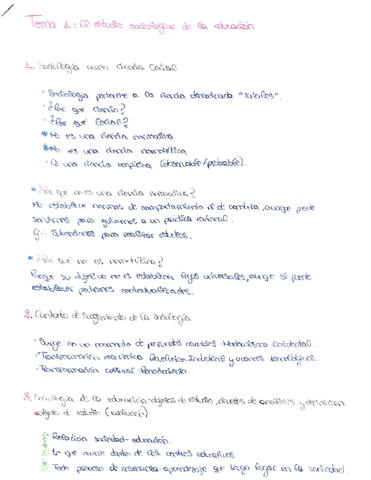 Tema 1: El estudio sociológico de la educación
1. Sociología como ciencia social
· Sociología pertenece a la ciencia denominada "sociales".
· ¿Por qué ciencia?
· ¿Por qué social?
* No es una ciencia normativa
* No es una ciencia nomotética
· Es una ciencia empírica (observable/probable).
* ¿Por qué no es una ciencia normativa?
No establece normas de comportamiento ni de conducta, aunque puede
servirnos para guiarnos a un
para realizar estudios.
* ¿Por qué no es nomotética?
Porque su objetivo no es establecer leyes universales, aunque sí puede
establecer patrones contextualizados.
2. Contexto de surgimiento de la sociología
· Surge en un momento de profundos cambios
· Transformación económica Revolución Industrial y avances tecnológicos.
· Transformación cultural
3. Sociología de la educación: objetos de estudio, niveles de análisis y definición
objeto de estudio (evolución)
Relación sociedad - educación.
Lo que ocurre dentro de los centros educativos
Todo proceso de enseñanza-aprendizaje que tenga lugar en la sociedad.